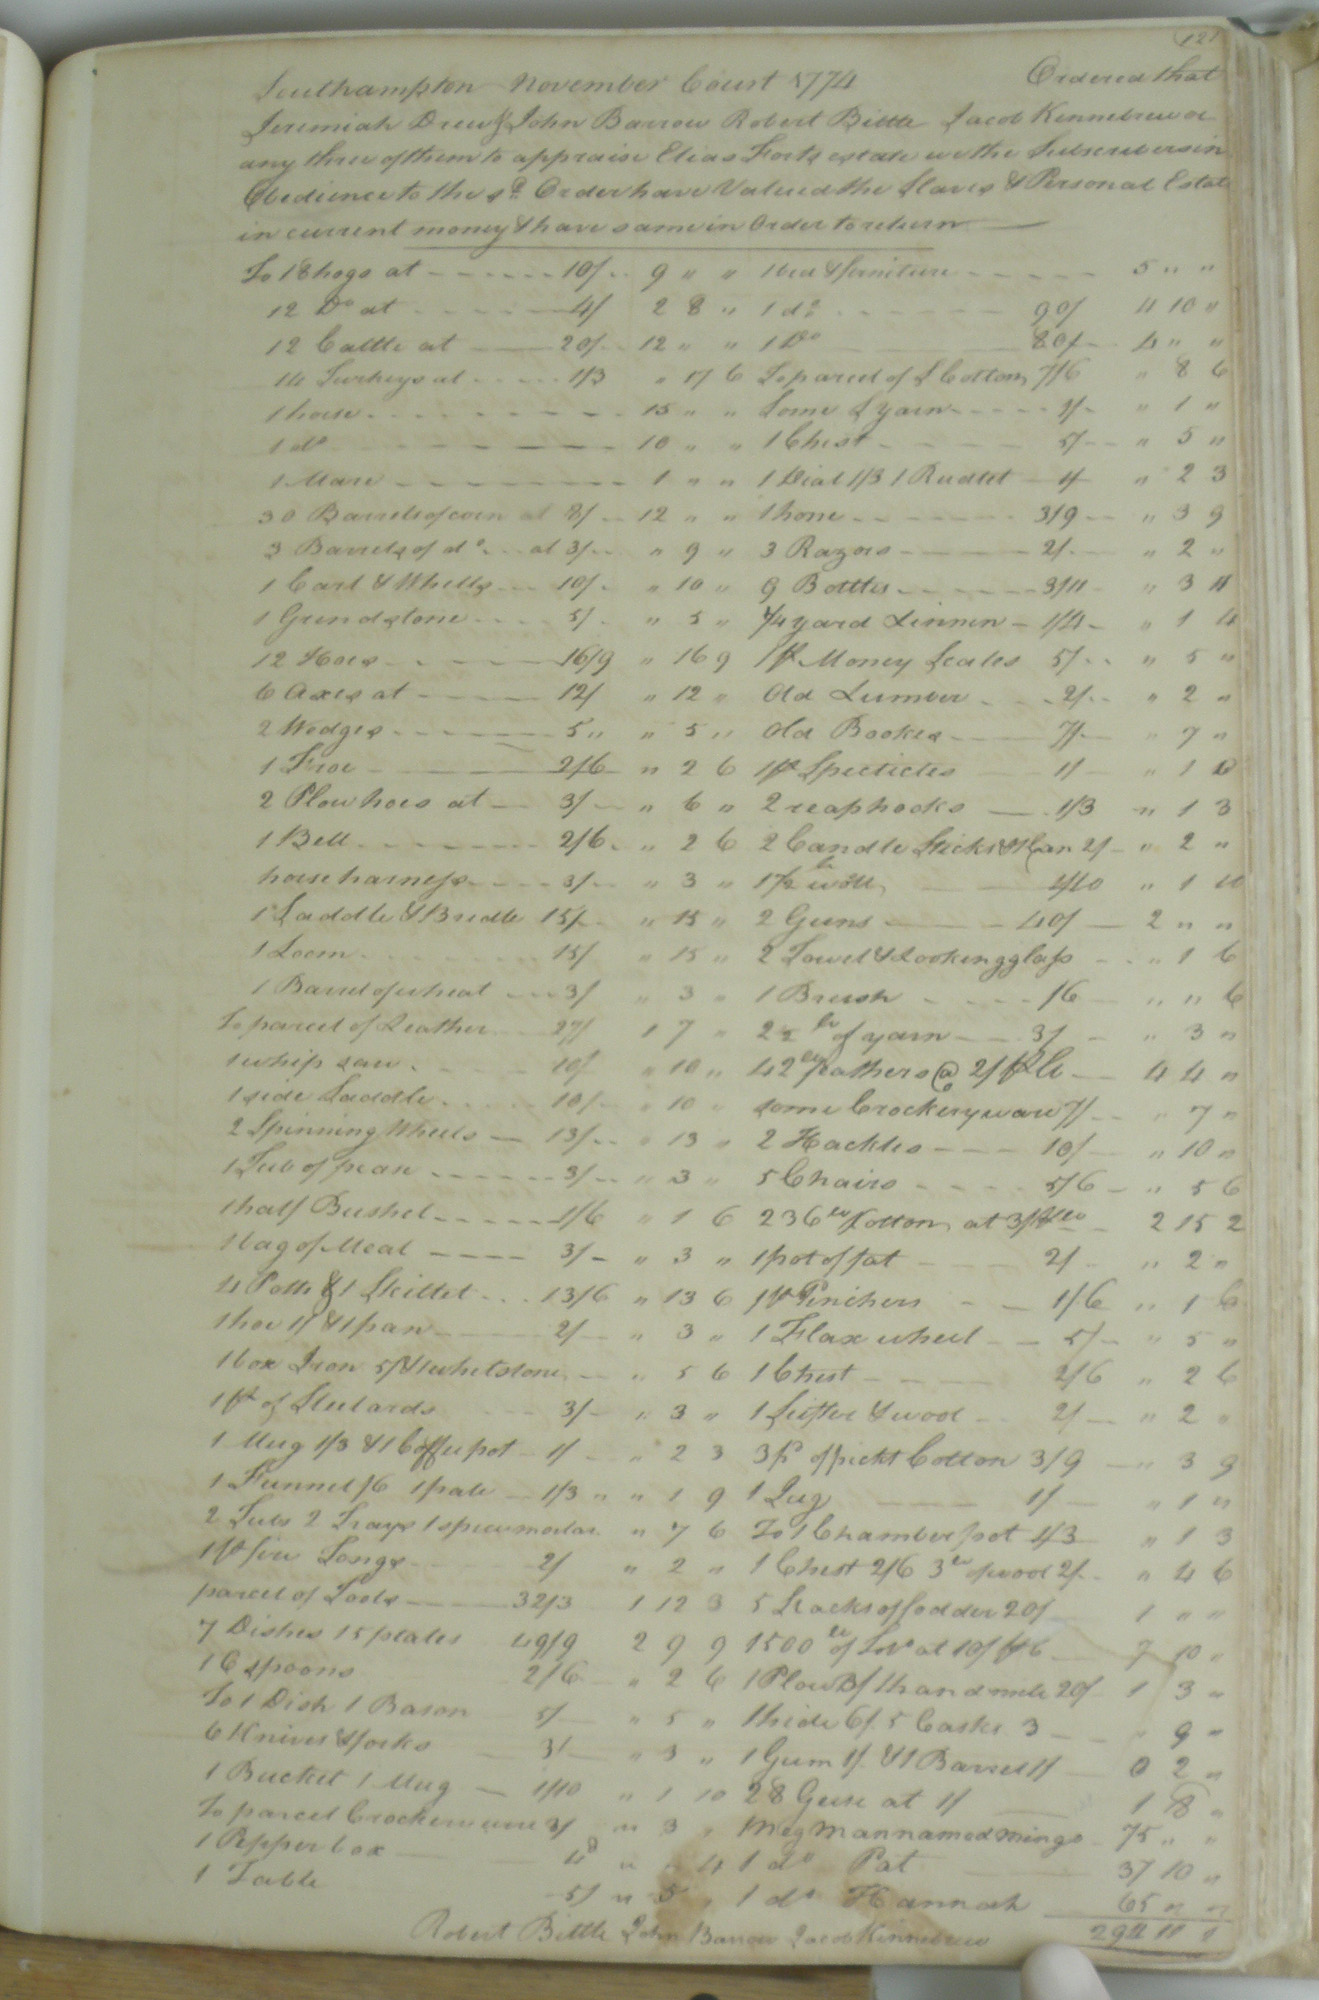 121
Southampton November Court 1774 Ordered that
Jeremiah Drew & John Barrow Robert Bittle Jacob Kennebrew or
any three of them to appraise Elias Forts estate we the Subscribers in
Obedience to the sd. Order have Valued the Slaves & Personal Estate
in current money & have same in Order to return
To 18 hogs at 10/ 9 " " 1 bed & furniture 5 " "
12 Do at 4/ 2 8 " 1 do 90/ 4 10 "
12 Cattle at 20/ 12 " " 1 Do 80/ 4 " "
14 Turkeys at 1/3 " 17 6 To parcel of S Cotton 7/6 " 8 6
1 horse 15 " " Some S yarn 1/ " 1 "
1 do 10 " " 1 Chest 5/ " 5 "
1 Mare 1 " " 1 Dial 1/3 1 1/ " 2 3
30 Barrels of corn at 8/ 12 " " 1 hone 3/9 " 3 9
3 Barrels of do at 3/ " 9 " 3 Razors 2/ " 2 "
1 Cart & Wheels 10/ " 10 " 9 Bottles 3/4 " 3 4
1 Grindstone 5/ " 5 " 3/4 yard Linnen 1/4 " 1 4
12 Hoes 16/9 " 16 9 1 pr Money Scales 5/ " 5 "
6 Axes at 12/ " 12 " Old Lumber 2/ " 2 "
2 Wedges 5 " " 5 " Old Bookes 7/ " 7 "
1 Froe 2/6 " 2 6 1 pr Specticles 1/ " 1 0
2 Plow hoes at 3/ " 6 " 2 reaphooks 1/3 " 1 3
1 Bell 2/6 " 2 6 2 Candle Sticks & 1 Can 2/ " 2 "
horse harness 3/ " 3 " 1 1/2 lb wool 1/10 " 1 10
1 Saddle & Bridle 15/ " 15 " 2 Guns 40/ 2 " "
1 Loom 15/ " 15 " 2 Towel & Lookingglass " 1 6
1 Barrel of wheat 3/ " 3 " 1 Brush /6 " " 6
To parcel of Leather 27/ 1 7 " 2 1/2 lb of yarn 3/ " 3 "
1 whip saw 10/ " 10 " 42 lb feathers @ 2/ pr lb 4 4 "
1 side Saddle 10/ " 10 " some Crockeryware 7/ " 7 "
2 Spinning Wheels 13/ " 13 " 2 Hackles 10/ " 10 "
1 Tub of pease 3/ " 3 " 5 Chairs 5/6 " 5 6
1 half Bushel 1/6 " 1 6 236 lb Cotton at 2 15 2
1 bag of Meal 3/ " 3 " 1 pot of fat 2/ " 2 "
4 Potts & 1 Skillet 13/6 " 13 6 1 pr Pinchers 1/6 " 1 6
1 hoe 1/ & 1 pan 2/ " 3 " 1 Flax wheel 5/ " 5 "
1 box Iron 5/ & 1 whetstone " 5 6 1 Chest 2/6 " 2 6
1 pr of Steelards 3/ " 3 " 1 Sifter & wool 2/ " 2 "
1 Mug 1/3 & 1 Coffeepot 1/ " 2 3 3 lb of pickt Cotton 3/9 " 3 9
1 Funnel /6 1 pale 1/3 " " 1 9 1 Jug 1/ " 1 "
2 Tubs 2 Trays 1 spicemortar " 7 6 To 1 Chamberpot 1/3 " 1 3
1 pr fire Tongs 2/ " 2 " 1 Chest 2/6 3 lb of wool 2/ " 4 6
parcel of Tools 32/3 1 12 3 5 Stacks of fodder 20/ 1 " "
7 Dishes 15 plates 49/9 2 9 9 1500 lb of at 10/ 7 10 "
16 spoons 2/6 " 2 6 1 Plow 3/ 20/ 1 3 "
To 1 Dish 1 Bason 5/ " 5 " 1 hide 6/ 5 Casks 3 " 9 "
6 Knives & forks 3/ " 3 " 1 Gum 1/ & 1 Barrel 1/ 0 2 "
1 Bucket 1 Mug 1/10 " 1 10 28 Geese at 1/ 1 8 "
To parcel Crockeryware 3/ " 3 " 1 Neg man named Mingo 75 " "
1 Pepperbox 4d " " 4 1 do Pat 37 10 "
1 Table 5/ " 5 " 1 do Hannah 65 " "
Robert Bittle John Barrow Jacob Kinnebrew 294 11 1